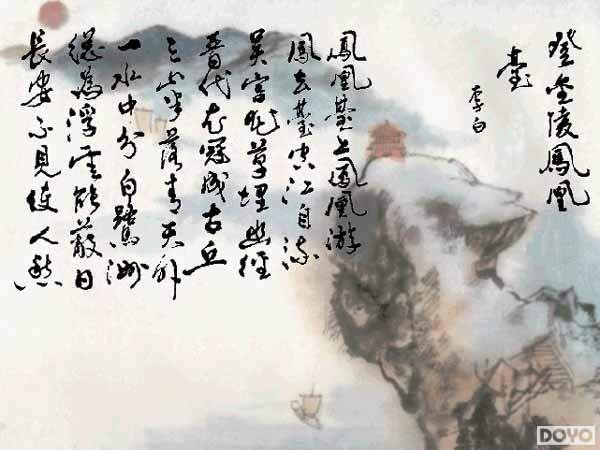 登金陵鳳凰
臺
李白
鳳凰臺上鳳凰游
鳳去臺空江自流
吳宮花草埋幽徑
晉代衣冠成古丘
三山半落青天外
一水中分白鷺洲
總為浮雲能蔽日
長安不見使人愁
DOYO